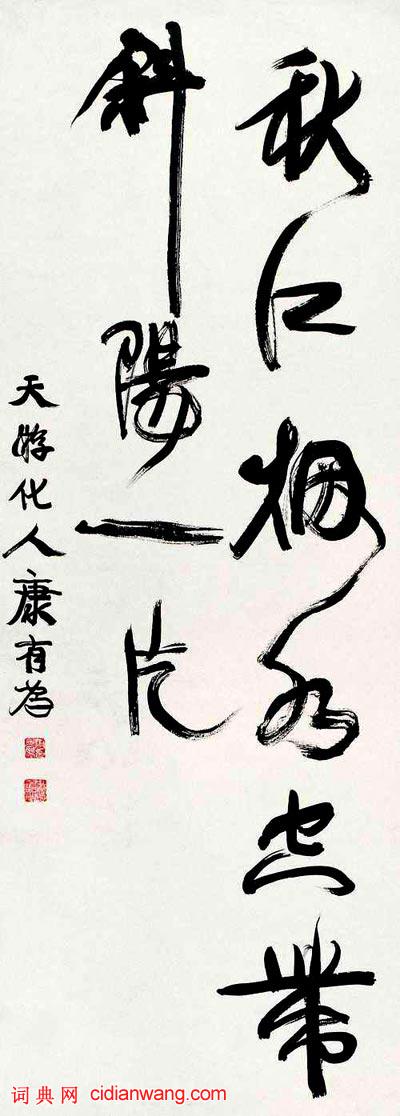 秋江烟水空帶
斜陽一片
天游化人康有為
词典网 cidianwang.com